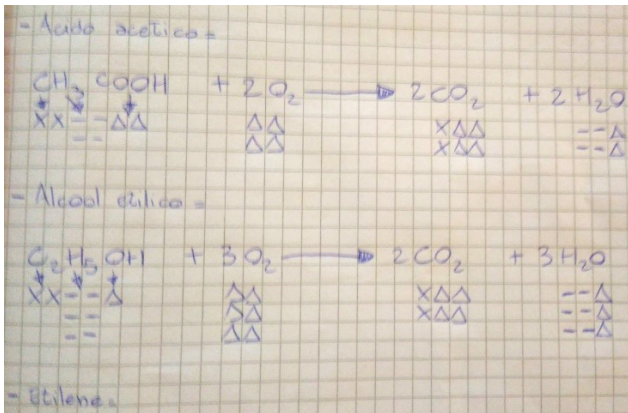 - Acido acetico =
CH₃ COOH + 2 O₂ → 2 CO₂ + 2 H₂O
X X - - Δ Δ   Δ Δ   X Δ Δ   - - Δ
- -   Δ Δ   X Δ Δ   - - Δ
- Alcool etilico =
C₂ H₅ OH + 3 O₂ → 2 CO₂ + 3 H₂O
X X - - Δ   Δ Δ   X Δ Δ   - - Δ
- -   Δ Δ   X Δ Δ   - - Δ
- -   Δ Δ   - - Δ
- Etilene =